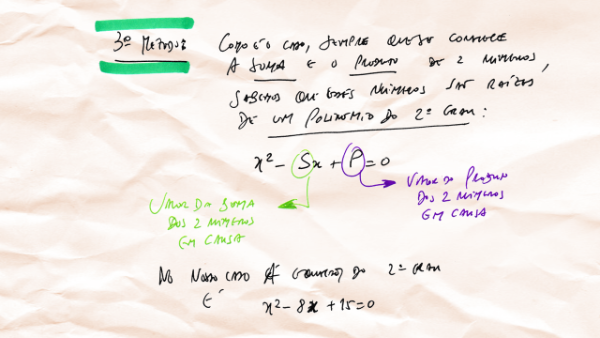 3º MÉTODO:
COMO É O CASO, SEMPRE QUE SE CONHECE
A SOMA E O PRODUTO DE 2 NÚMEROS,
SABEMOS QUE ESSES NÚMEROS SÃO RAÍZES
DE UM POLINÓMIO DO 2º GRAU:
x² - Sx + P = 0
VALOR DO PRODUTO
DOS 2 NÚMEROS
EM CAUSA
VALOR DA SOMA
DOS 2 NÚMEROS
EM CAUSA
NO NOSSO CASO A EQUAÇÃO DO 2º GRAU
É
x² - 8x + 15 = 0